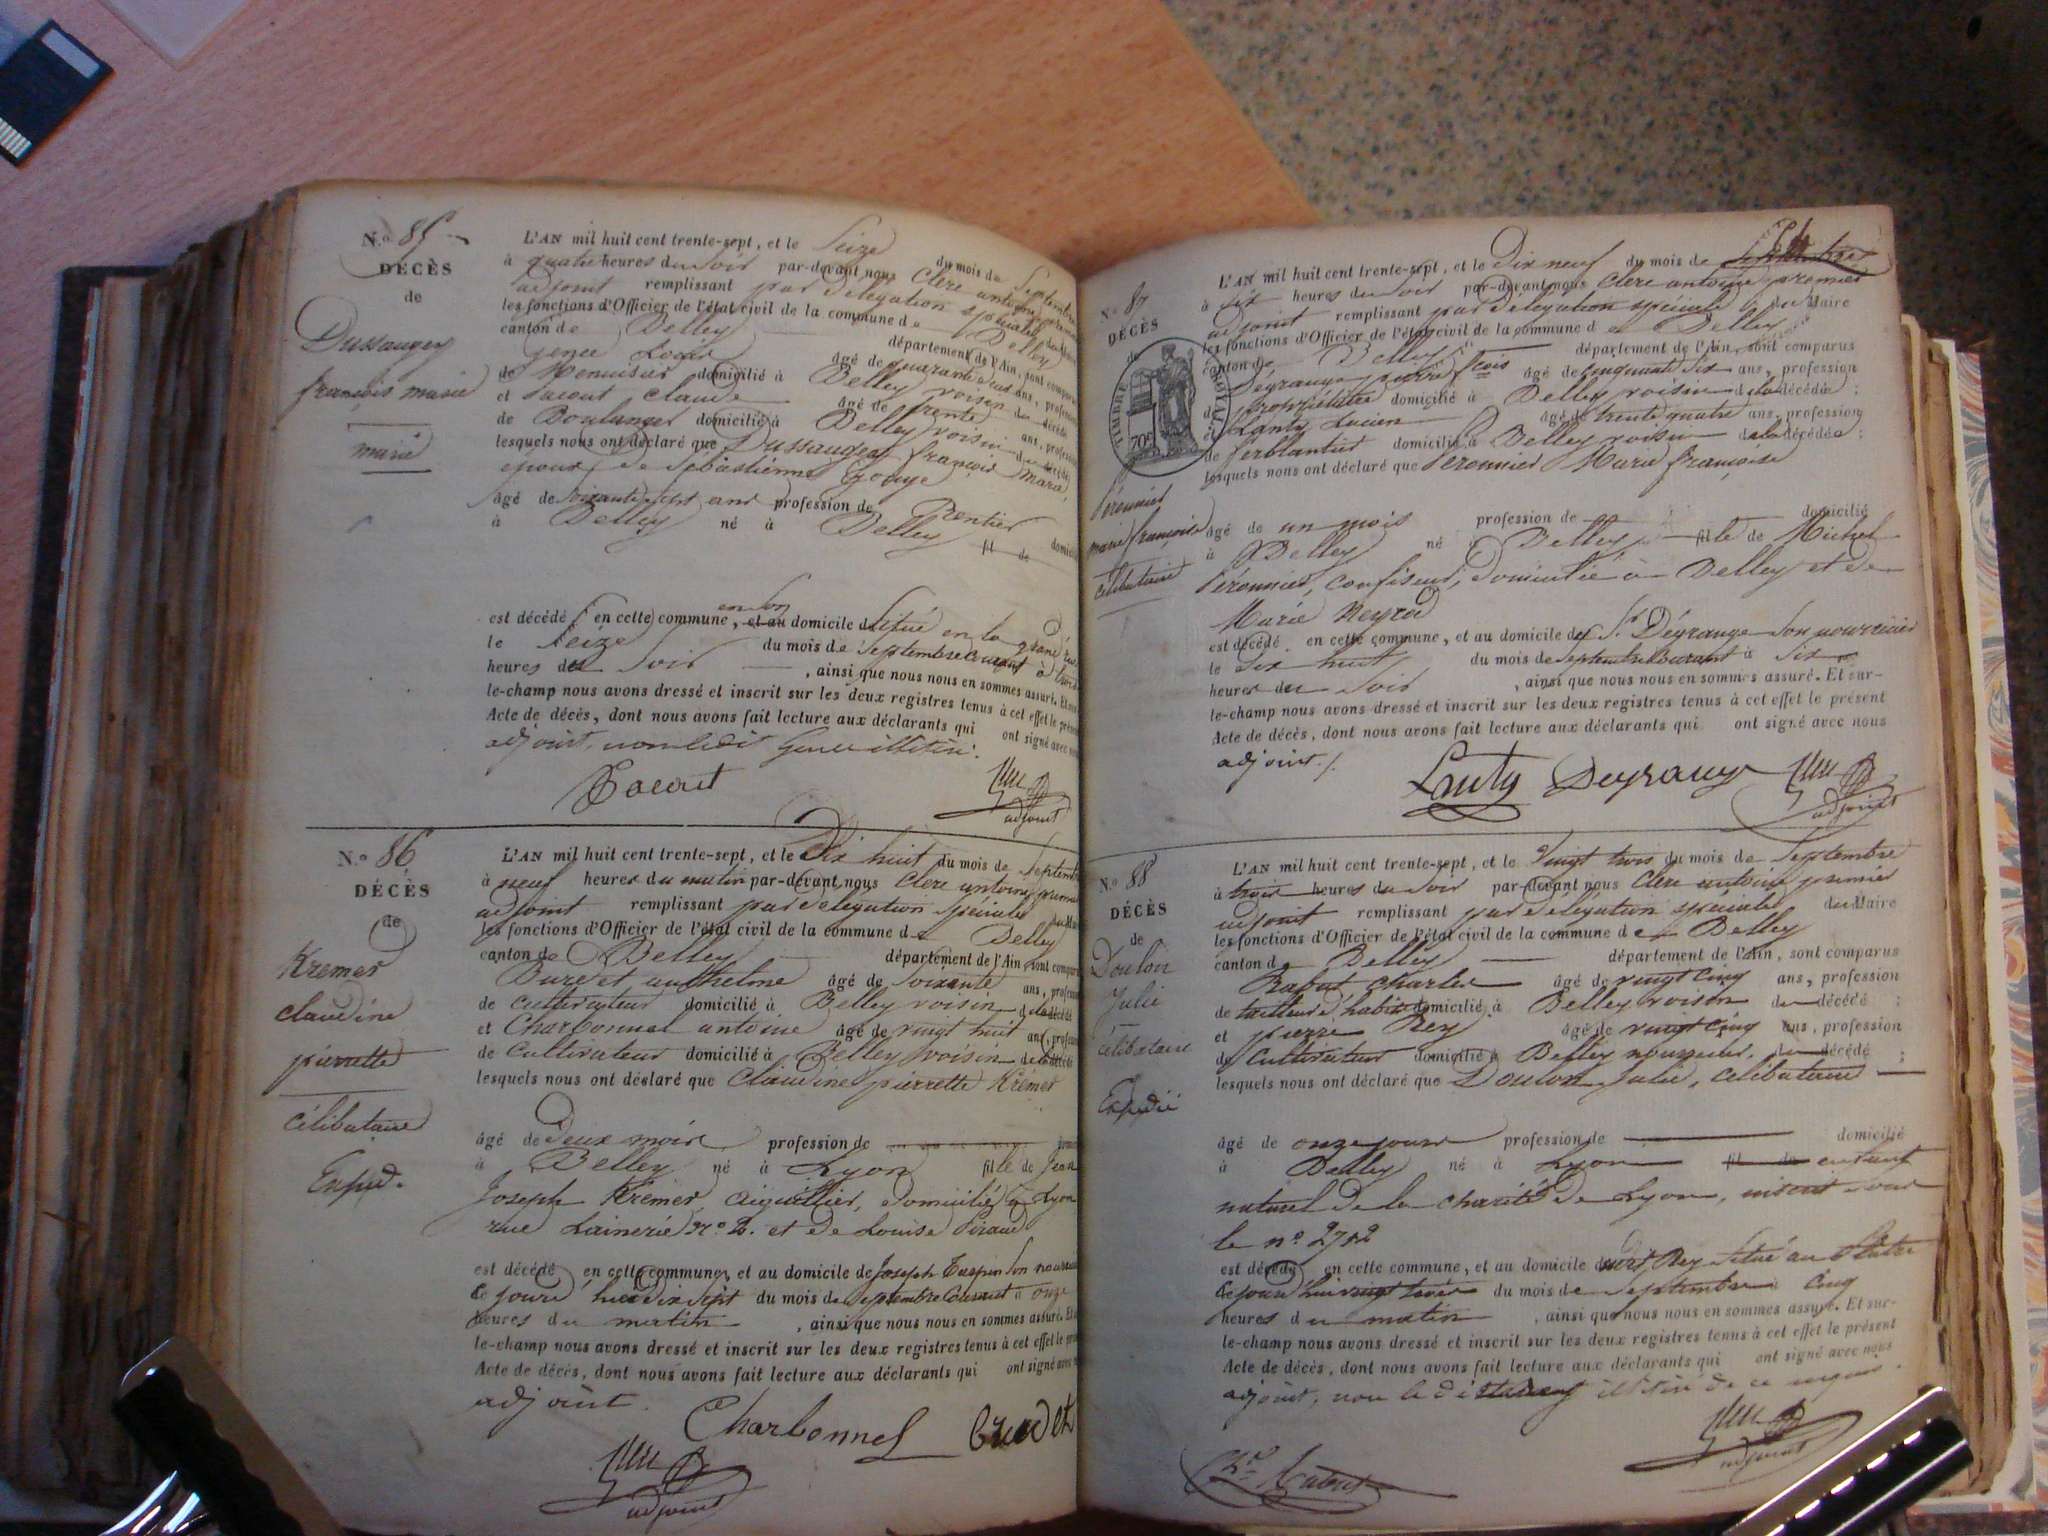 N.o 85
DÉCÈS
de
Dussauger
françois marie
marié
L'AN mil huit cent trente-sept, et le Seize du mois de Septembre
à quatre heures du Soir par-devant nous Clerc antoine
adjoint remplissant par délégation spéciale
les fonctions d'Officier de l'état civil de la commune de Belley
canton de Belley département de l'Ain, sont comparus
âgé de quarante ans, profession
de Menuisier domicilié à Belley voisin du décédé
et Pacout Claude âgé de trente ans, profession
de Boulanger domicilié à Belley voisin du décédé
lesquels nous ont déclaré que Dussauger françois Marie,
époux de Sébastienne Gouge
âgé de soixante sept ans profession de Rentier
à Belley né à Belley fil de
en son
est décédé en cette commune, et au domicile situé en la grand rue
le Seize du mois de Septembre Courant à trois
heures du Soir , ainsi que nous nous en sommes assuré. Et sur-
le-champ nous avons dressé et inscrit sur les deux registres tenus à cet effet le présent
Acte de décès, dont nous avons fait lecture aux déclarants qui ont signé avec nous
adjoint, non ledit illitéré.
adjoint
N.o 86
DÉCÈS
de
Kremer
claudine
pierrette
célibataire
Exped.
L'AN mil huit cent trente-sept, et le Dix huit du mois de Septembre
à neuf heures du matin par-devant nous Clerc antoine premier
adjoint remplissant par délégation spéciale du Maire
les fonctions d'Officier de l'état civil de la commune de Belley
canton de Belley département de l'Ain, sont comparus
anthelme âgé de soixante ans, profession
de cultivateur domicilié à Belley voisin de la décédé
et Charbonnel antoine âgé de vingt huit ans, profession
de Cultivateur domicilié à Belley voisin de la décédé
lesquels nous ont déclaré que Claudine pierrette Krémer
âgé de Deux mois profession de
à Belley né à Lyon fille de Jean
Joseph Krémer, aiguillier, domicilié à Lyon
rue Lainerie et de Louise Giraud
est décédé en cette commune, et au domicile de Joseph son nourricier
le jour d'hier dix sept du mois de septembre Courant à onze
heures du matin , ainsi que nous nous en sommes assuré. Et
le-champ nous avons dressé et inscrit sur les deux registres tenus à cet effet le présent
Acte de décès, dont nous avons fait lecture aux déclarants qui ont signé avec
adjoint.
Charbonnel
adjoint
N.o 87
DÉCÈS
de
TIMBRE ROYAL
70c
Péronnier
marie françoise
célibataire
L'AN mil huit cent trente-sept, et le Dix neuf du mois de Septembre
à six heures du Soir par-devant nous Clerc antoine premier
adjoint remplissant par délégation spéciale du Maire
les fonctions d'Officier de l'état civil de la commune de Belley
canton de Belley département de l'Ain, sont comparus
Dégrange pierre fcois âgé de cinquante six ans, profession
de propriétaire domicilié à Belley voisin de la décédée ;
et Lanty Lucien âgé de trente quatre ans, profession
de ferblantier domicilié à Belley voisin de la décédée ;
lesquels nous ont déclaré que Péronnier Marie françoise
âgé de un mois profession de domicilié
à Belley né à Belley fille de Michel
Péronnier, confiseur, domicilié à Belley et de
Marie Neyrod
est décédé en cette commune, et au domicile du Sr Dégrange Son nourricier
le dix huit du mois de Septembre Courant à Six
heures du Soir , ainsi que nous nous en sommes assuré. Et sur-
le-champ nous avons dressé et inscrit sur les deux registres tenus à cet effet le présent
Acte de décès, dont nous avons fait lecture aux déclarants qui ont signé avec nous
adjoint./.
Lanty Degrange
adjoint
N.o 88
DÉCÈS
de
Doulon
Julie
célibataire
Expédié
L'AN mil huit cent trente-sept, et le Vingt trois du mois de Septembre
à trois heures du Soir par-devant nous Clerc antoine premier
adjoint remplissant par délégation spéciale du Maire
les fonctions d'Officier de l'état civil de la commune de Belley
canton d Belley département de l'Ain, sont comparus
Rabut Charles âgé de vingt cinq ans, profession
de tailleur d'habits domicilié à Belley voisin du décédé ;
et pierre Rey âgé de vingt cinq ans, profession
de Cultivateur domicilié à Belley nourricier du décédé ;
lesquels nous ont déclaré que Doulon Julie, célibataire
âgé de onze jours profession de domicilié
à Belley né à Lyon fil de enfant
naturel de la charité de Lyon, inscrit sous
le no 2782
est décédé en cette commune, et au domicile dudit Rey situé au
le jour d'hui vingt trois du mois de Septembre à Cinq
heures du matin , ainsi que nous nous en sommes assuré. Et sur-
le-champ nous avons dressé et inscrit sur les deux registres tenus à cet effet le présent
Acte de décès, dont nous avons fait lecture aux déclarants qui ont signé avec nous
adjoint, non le dit illitéré de ce requis.
adjoint